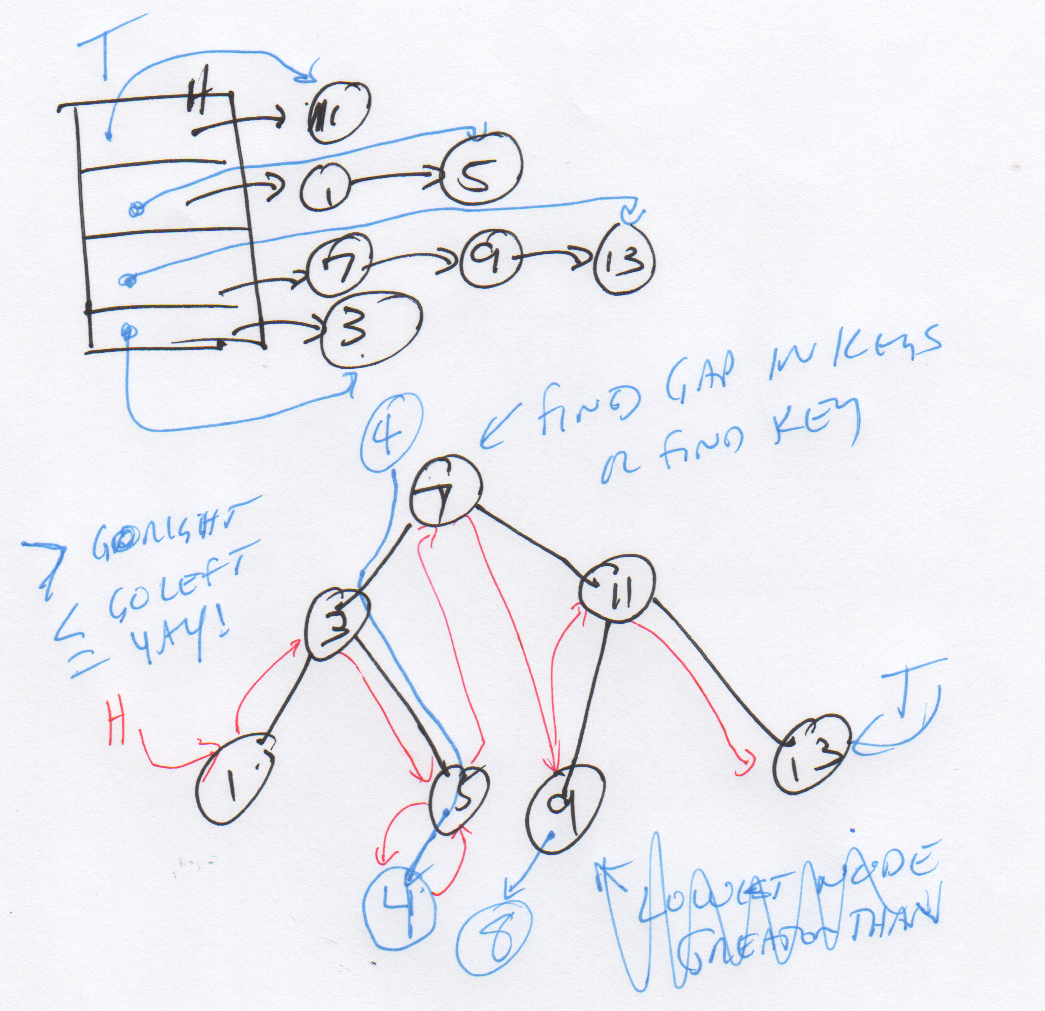 T
H
11
1 5
7 9 13
3
4
FIND GAP IN KEYS
OR FIND KEY
7
> GO RIGHT
< GO LEFT
= YAY!
3
11
H
T
1
5
9
13
4
8
LOWEST NODE
GREATER THAN